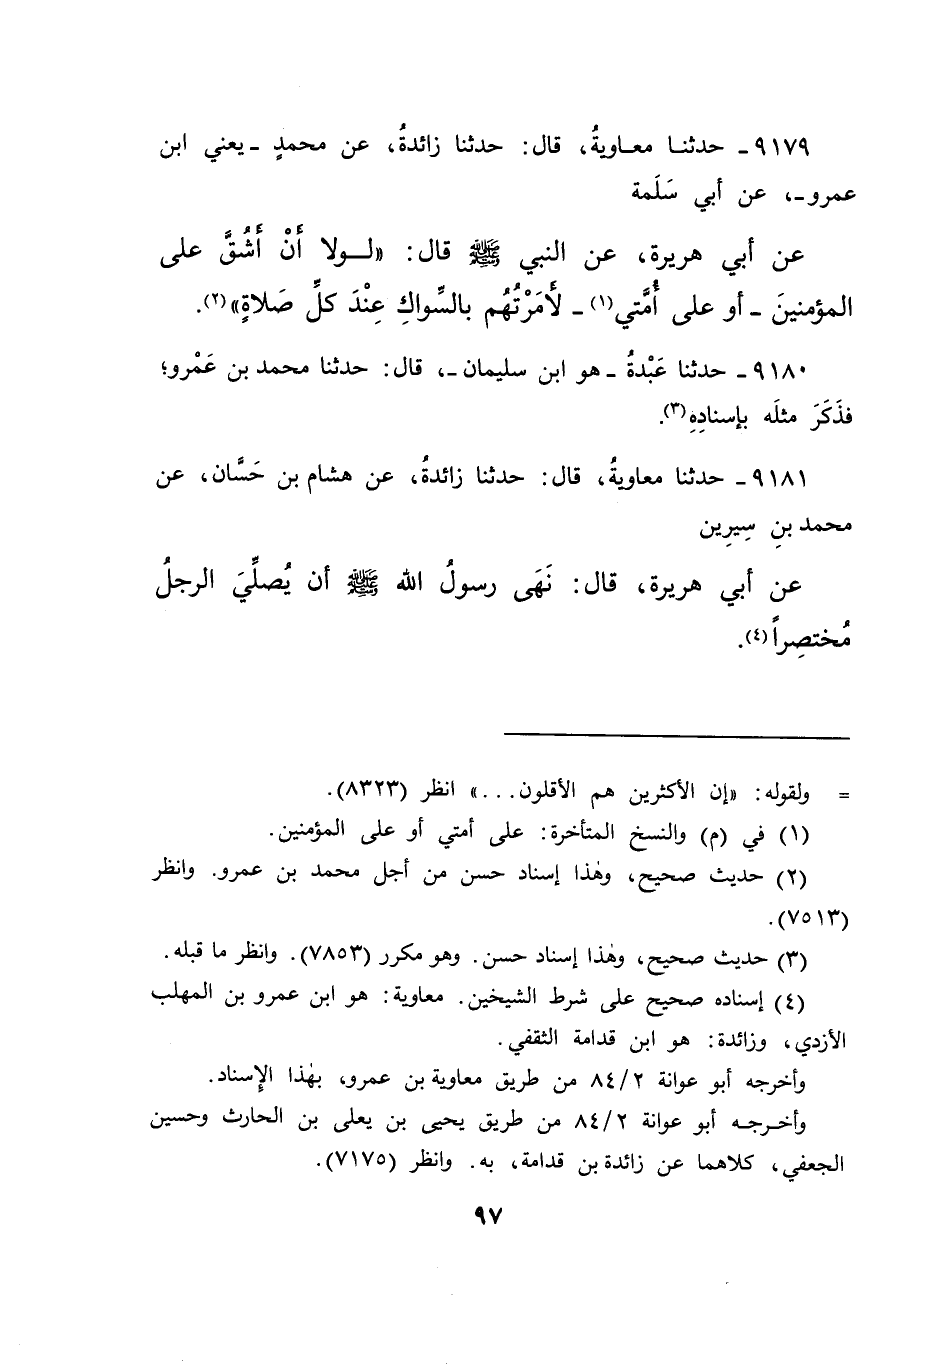 ٩١٧٩ـ حدثنـا معـاويةُ، قال: حدثنا زائدةُ، عن محمدٍ ـ يعني ابن
عمرو ـ، عن أبي سَلَمة
عن أبي هريرة، عن النبي ﷺ قال: «لـولا أَنْ أَشُقَّ على
المؤمنينَ ـ أو على أُمَّتي(١) ـ لأَمَرْتُهُم بالسِّواكِ عِنْدَ كلِّ صَلاةٍ»(٢).
٩١٨٠ـ حدثنا عَبْدةُ ـ هو ابن سليمان ـ، قال: حدثنا محمد بن عَمْرو؛
فذَكَرَ مثلَه بإسنادِهِ(٣).
٩١٨١ـ حدثنا معاويةُ، قال: حدثنا زائدةُ، عن هشام بن حَسَّان، عن
محمد بنِ سِيرِين
عن أبي هريرة، قال: نَهَى رسولُ الله ﷺ أن يُصلِّيَ الرجلُ
مُختصِراً(٤).
= ولقوله: «إن الأكثرين هم الأقلون...» انظر (٨٣٢٣).
(١) في (م) والنسخ المتأخرة: على أمتي أو على المؤمنين.
(٢) حديث صحيح، وهٰذا إسناد حسن من أجل محمد بن عمرو. وانظر
(٧٥١٣).
(٣) حديث صحيح، وهٰذا إسناد حسن. وهو مكرر (٧٨٥٣). وانظر ما قبله.
(٤) إسناده صحيح على شرط الشيخين. معاوية: هو ابن عمرو بن المهلب
الأزدي، وزائدة: هو ابن قدامة الثقفي.
وأخرجه أبو عوانة ٨٤/٢ من طريق معاوية بن عمرو، بهٰذا الإسناد.
وأخـرجـه أبو عوانة ٨٤/٢ من طريق يحيى بن يعلى بن الحارث وحسين
الجعفي، كلاهما عن زائدة بن قدامة، به. وانظر (٧١٧٥).
٩٧